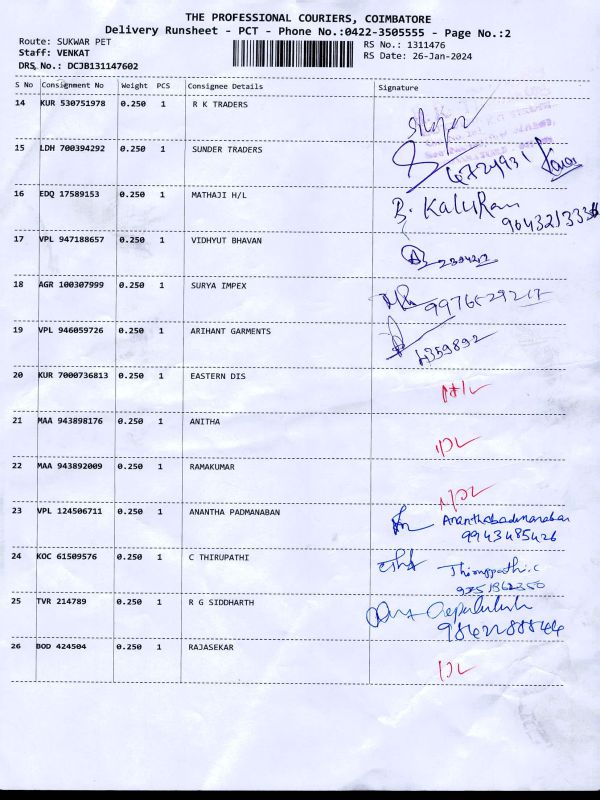 THE PROFESSIONAL COURIERS, COIMBATORE
Delivery Runsheet - PCT - Phone No.:0422-3505555 - Page No.:2
Route: SUKWAR PET
RS No.: 1311476
Staff: VENKAT
RS Date: 26-Jan-2024
DRS No.: DCJB131147602
S No Consignment No Weight PCS Consignee Details Signature
14 KUR 530751978 0.250 1 R K TRADERS
15 LDH 700394292 0.250 1 SUNDER TRADERS
16 EDQ 17589153 0.250 1 MATHAJI H/L B. KaluRam
17 VPL 947188657 0.250 1 VIDHYUT BHAVAN
18 AGR 100307999 0.250 1 SURYA IMPEX
19 VPL 946059726 0.250 1 ARIHANT GARMENTS
4359892
20 KUR 7000736813 0.250 1 EASTERN DIS
21 MAA 943898176 0.250 1 ANITHA
22 MAA 943892009 0.250 1 RAMAKUMAR
23 VPL 124506711 0.250 1 ANANTHA PADMANABAN
9943485426
24 KOC 61509576 0.250 1 C THIRUPATHI
25 TVR 214789 0.250 1 R G SIDDHARTH
26 BOD 424504 0.250 1 RAJASEKAR